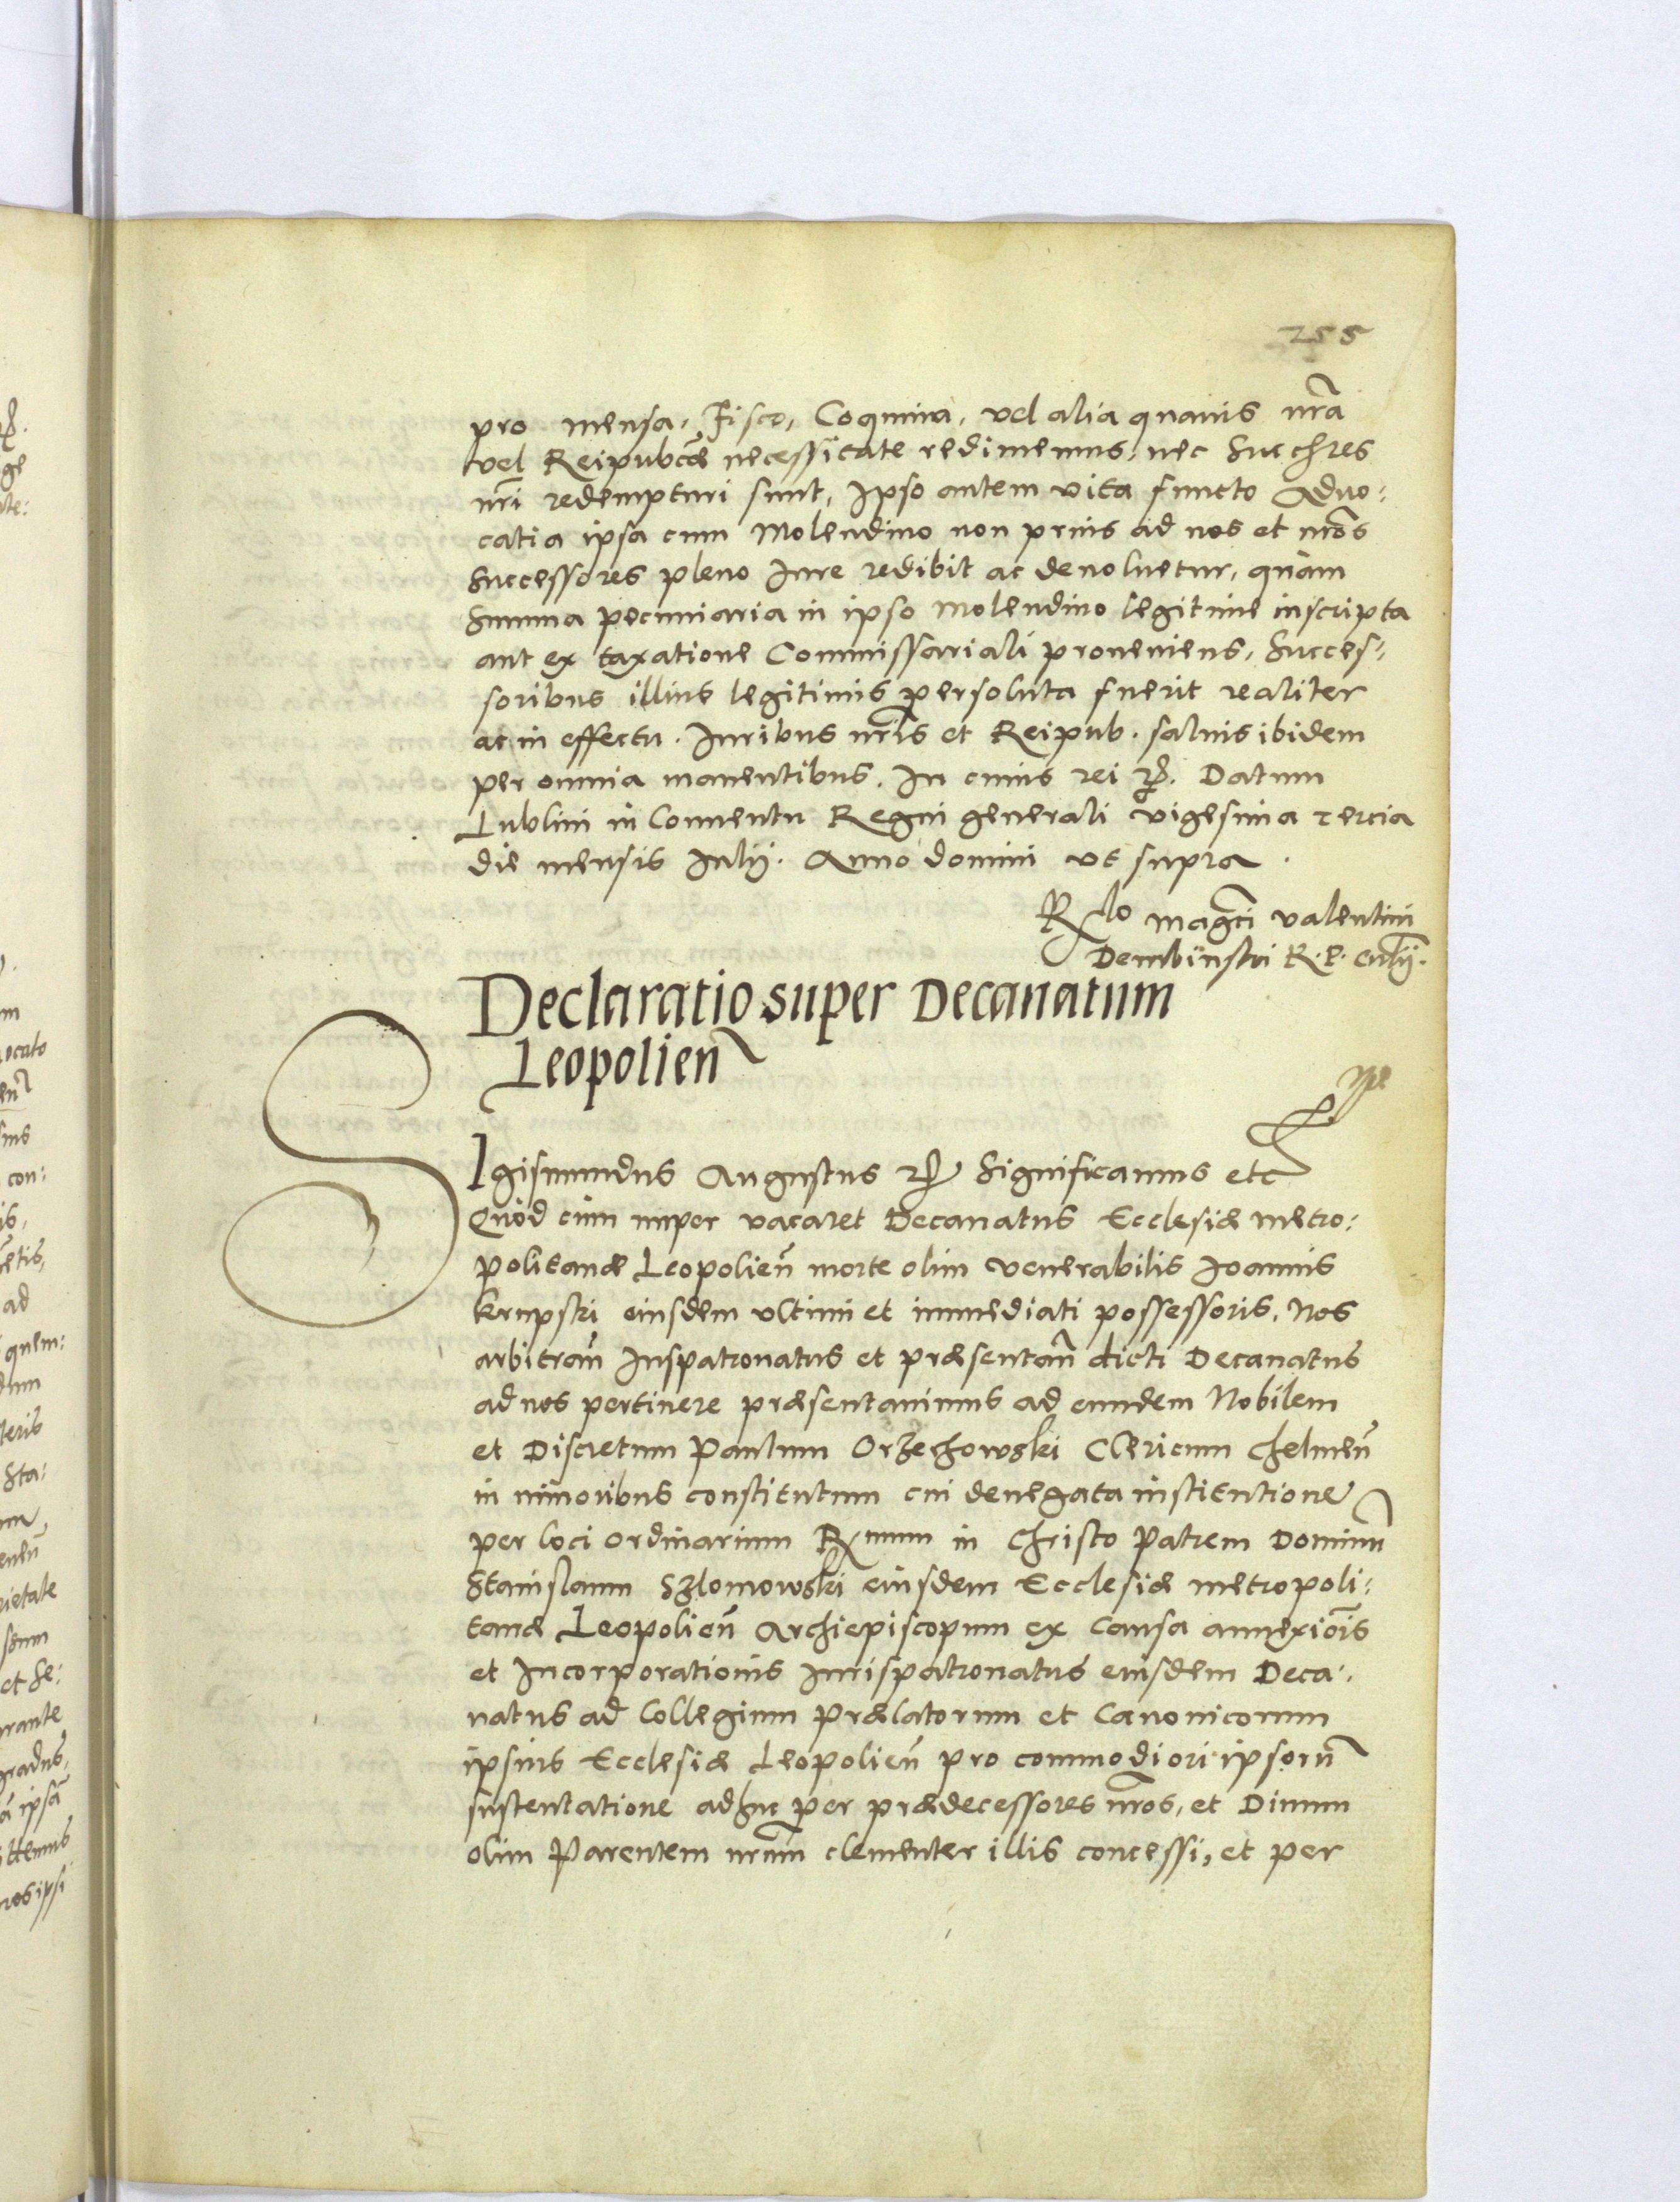 255
pro mensa, Fisco, Coquina, vel alia quauis nr̃a
vel Reipubcæ necessitate redimemus, nec Succ̃res
nr̃i redempturi sunt, Ipso autem vita functo Aduo:
catia ipsa cum Molendino non prius ad nos et nr̃os
Successores pleno Iure redibit ac deuoluetur, quàm
Summa pecuniaria in ipso Molendino legitime inscripta
aut ex taxatione Commissariali proueniens, Succes:
soribus illius legitimis persoluta fuerit realiter
ac in effectu. Iuribus nr̃is et Reipub. saluis ibidem
per omnia manentibus. In cuius rei etc. Datum
Lublini in Conuentu Regni generali vigesima tercia
die mensis Iulij. Anno domini vt supra.
Rlo magci valentini
Dembinski R. P. Cancellarij.
Declaratio super Decanatum
Leopolien̄
SIgismundus Augustus etc. Significamus etc
Quòd cùm nuper vacaret Decanatus Ecclesiæ metro:
politanæ Leopolien̄ morte olim venerabilis Ioannis
Krupski eiusdem vltimi et immediati possessoris. Nos
arbitran̄ Iuspatronatus et præsentan̄ dicti Decanatus
ad nos pertinere præsentauimus ad eundem Nobilem
et Discretum Paulum Orzechowski Clericum Chelmen̄
in minoribus constitutum cui denegata institutione
per loci ordinarium Rmum in Christo Patrem Dominū
Stanislaum Szlomowski eiusdem Ecclesiæ metropoli:
tanæ Leopolien̄ Archiepiscopum ex causa annexiõis
et Incorporationis Iurispatronatus eiusdem Deca:
natus ad Collegium Prælatorum et Canonicorum
ipsius Ecclesiæ Leopolien̄ pro commodiori ipsorū
sustentatione adhuc per prædecessores nr̃os, et Diuum
olim Parentem nr̃um clementer illis concessi, et per